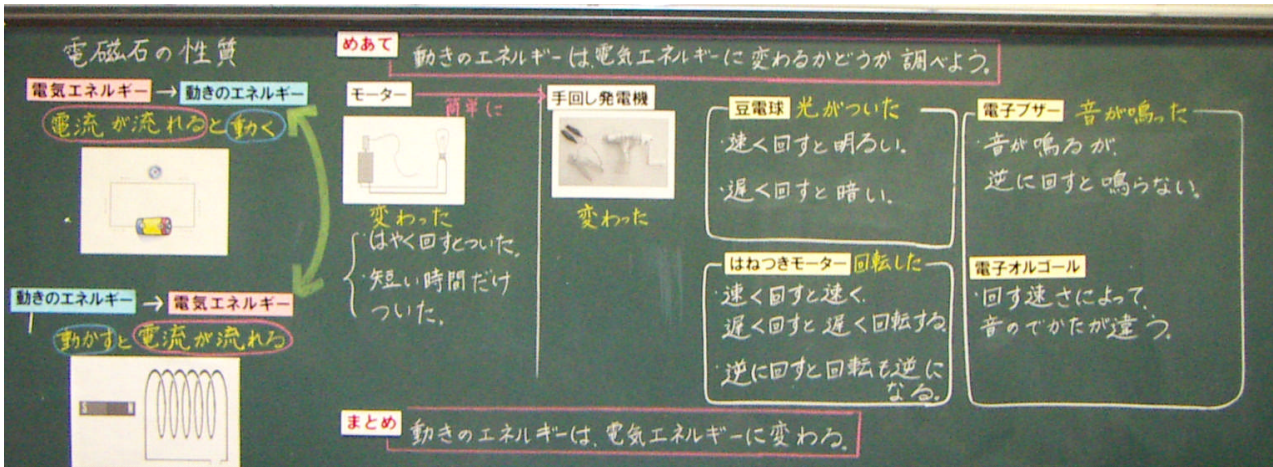 電磁石の性質
電気エネルギー → 動きのエネルギー
電流が流れると動く
動きのエネルギー → 電気エネルギー
動かすと電流が流れる
めあて
動きのエネルギーは、電気エネルギーに変わるかどうか調べよう。
モーター
簡単に
手回し発電機
変わった
・はやく回すとついた。
・短い時間だけ
ついた。
変わった
豆電球 光がついた
・速く回すと明るい。
・遅く回すと暗い。
はねつきモーター 回転した
・速く回すと速く、
遅く回すと遅く回転する。
・逆に回すと回転も逆に
なる。
電子ブザー 音が鳴った
・音が鳴るが、
逆に回すと鳴らない。
電子オルゴール
・回す速さによって、
音のでかたが違う。
まとめ
動きのエネルギーは、電気エネルギーに変わる。